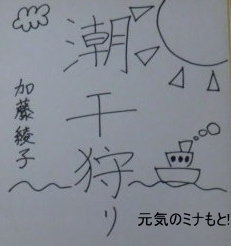 潮干狩り
加藤綾子
元気のミナもと!